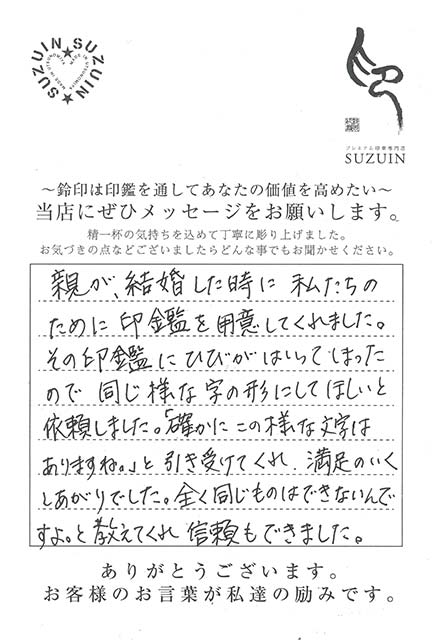 SUZUIN★SUZUIN★
MADE IN UTSUNOMIYA
プレミアム印章専門店
SUZUIN
～鈴印は印鑑を通してあなたの価値を高めたい～
当店にぜひメッセージをお願いします。
精一杯の気持ちを込めて丁寧に彫り上げました。
お気づきの点などございましたらどんな事でもお聞かせください。
親が、結婚した時に 私たちの
ために 印鑑を用意してくれました。
その印鑑にひびがはいってしまった
ので 同じ様な字の形にしてほしいと
依頼しました。「確かに この様な文字は
ありますね。」と 引き受けてくれ、満足のいく
しあがりでした。全く同じものはできないんで
すよ。と教えてくれ 信頼もできました。
ありがとうございます。
お客様のお言葉が私達の励みです。